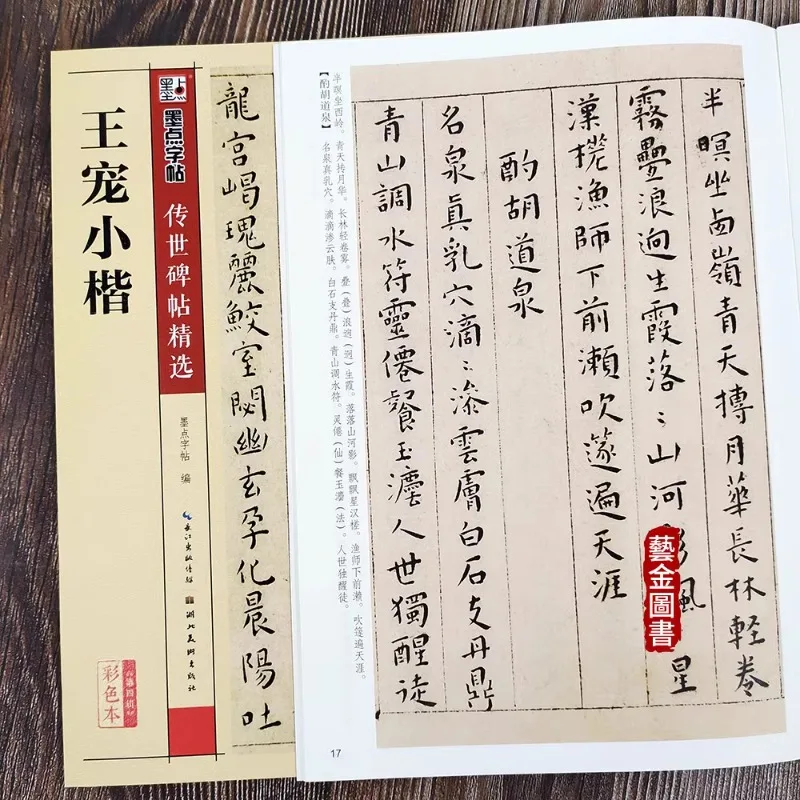 王宠小楷
墨点
墨点字帖
传世碑帖精选
墨点字帖 编
长江出版传媒
湖北美术出版社
彩色本
龍宮嵑瑰麗鮫室閟幽玄孕化晨陽吐
半暝坐西岭。青天抟月华。长林轻卷雾。叠(叠)浪迥(迥)生霞。落落山河影。飘飘星汉槎。渔师下前濑。吹篴遍天涯。
【酌胡道泉】 名泉真乳穴。滴滴渗云肤。白石支丹鼎。青山调水符。灵僊(仙)餐玉灋(法)。人世独醒徒。
半暝坐西嶺青天摶月華長林輕卷
霧疊浪迥生霞落〻山河影 星
漢槎漁師下前瀨吹篴遍天涯
酌胡道泉
名泉真乳穴滴〻滲雲膚白石支丹鼎
青山調水符靈僊餐玉灋人世獨醒徒
17
藝金圖書